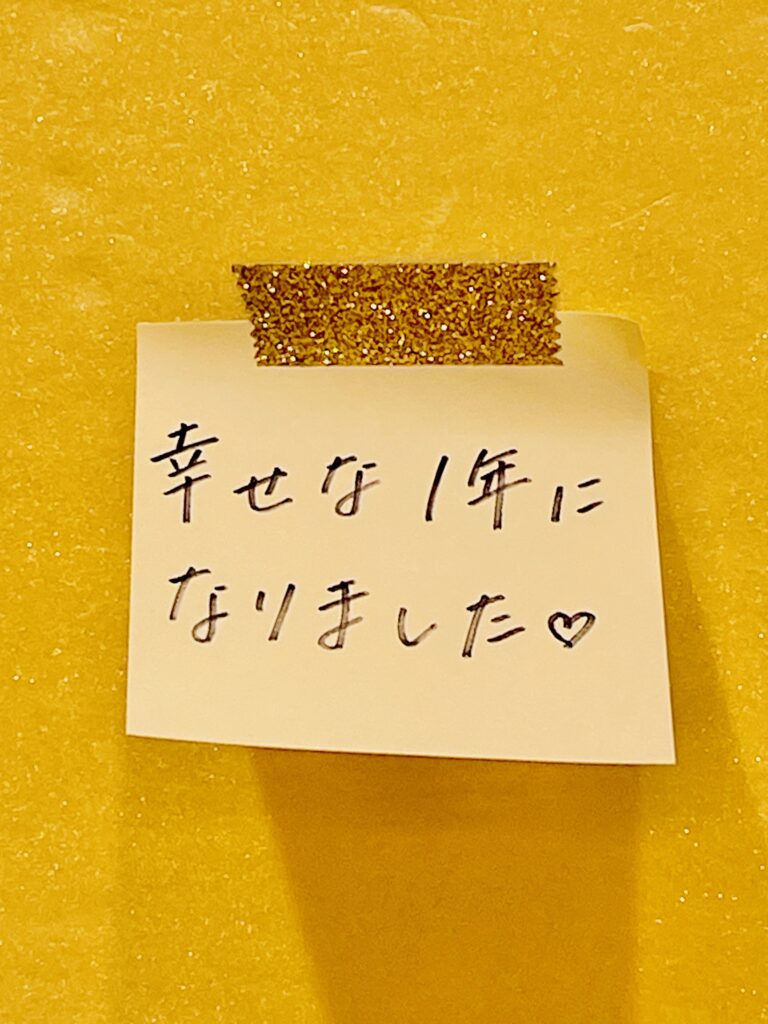 幸せな1年に
なりました♡